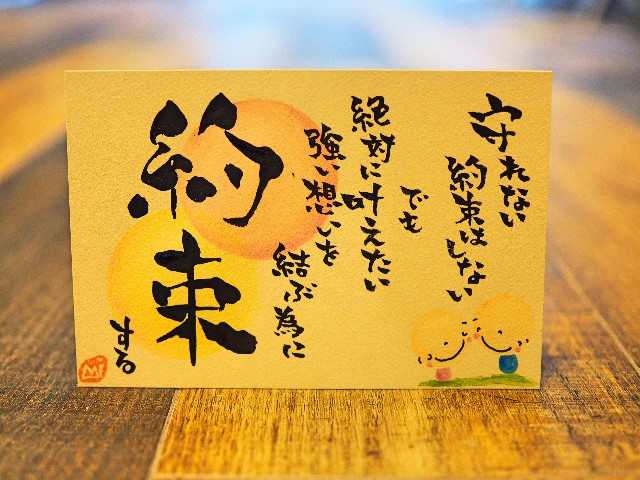 守れない
約束はしない
でも
絶対に叶えたい
強い想いを
結ぶ為に
約束
する